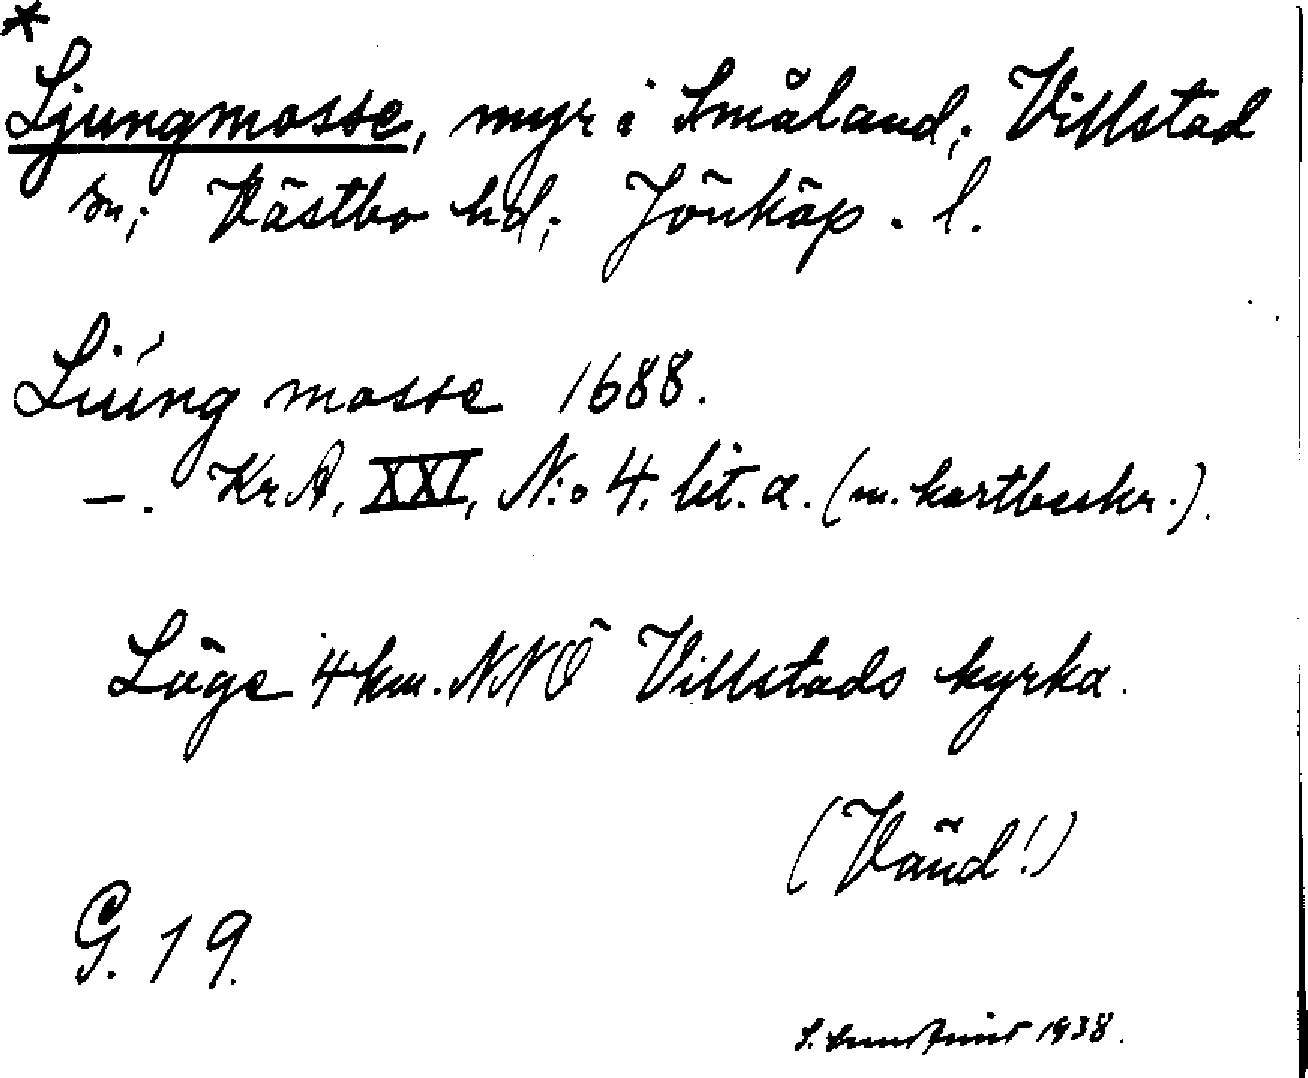 *
Ljungmosse, myr i Småland; Villstad
sn; Västbo hd; Jönköp. l.
Liúng mosse 1688.
—. KrA, XXI, N:o 4. lit. a. (m. kartbeskr.).
Läge 4 km. NNÖ Villstads kyrka.
(Vänd!)
G. 19.
S. 1938.